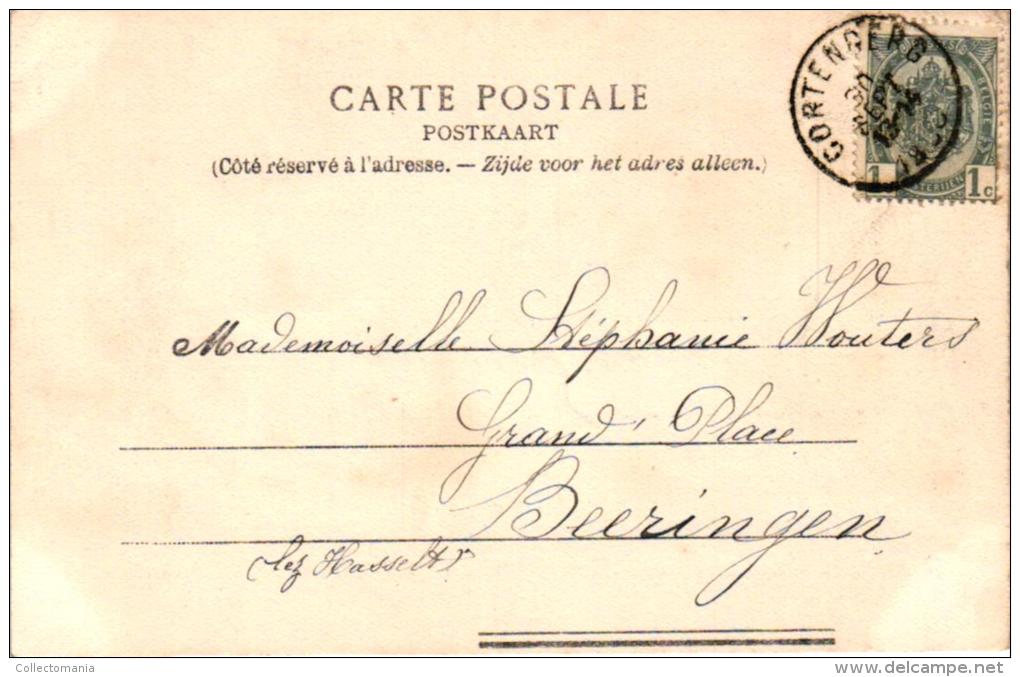 CARTE POSTALE
POSTKAART
(Côté réservé à l'adresse. — Zijde voor het adres alleen.)
CORTENBERG
SEPT
BELGIE
1 1c
Mademoiselle Stéphanie Wouters
Grand' Place
Beeringen
(lez Hasselt)
Collectomania
delcampe.net